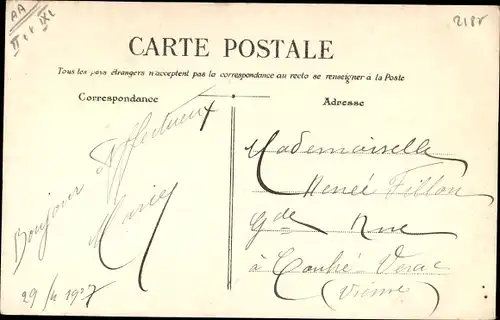 AA
II et IXe
218F
CARTE POSTALE
Tous les pays étrangers n'acceptent pas la correspondance au recto se renseigner à la Poste
Correspondance
Adresse
Bonjour affectueux
Marie
29/4 1907
Mademoiselle
Renée Fillon
Gde Rue
à Couhé-Verac
(Vienne)